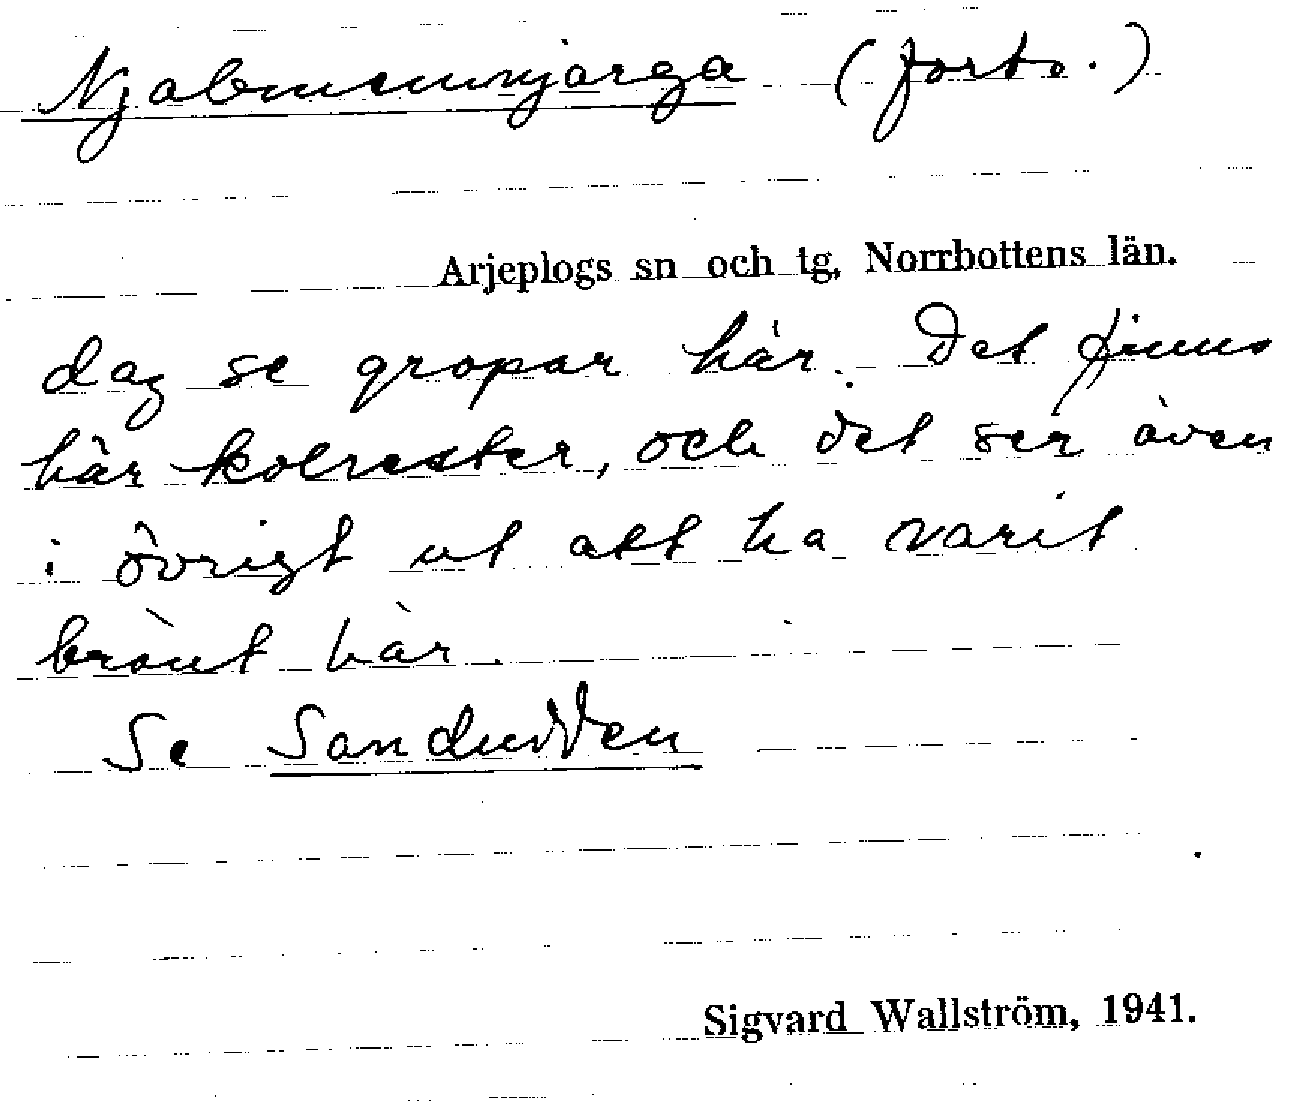 Njalmemnjarga (forts.)
Arjeplogs sn och tg, Norrbottens län.
dag se gropar här. Det finns
här kolrester, och det ser även
i övrigt ut att ha varit
bränt här.
Se Sandudden
Sigvard Wallström, 1941.